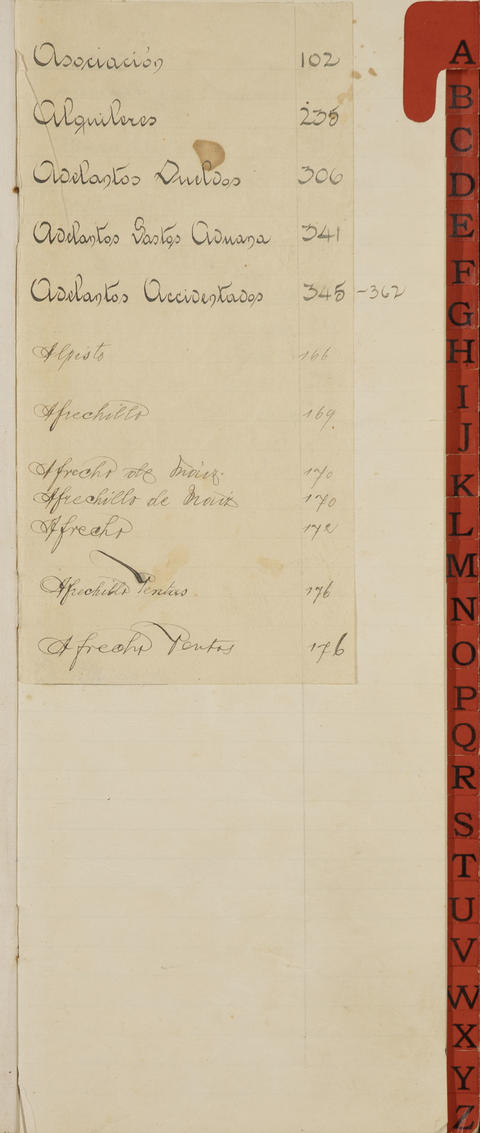 Asociación 102
Alquileres 235
Adelantos Sueldos 306
Adelantos Gastos Aduana 341
Adelantos Accidentados 345 - 362
Alpiste 166
Afrechillo 169
Afrecho de Maiz 170
Afrechillo de Maiz 170
Afrecho 172
Afrechillo Ventas 176
Afrecho Ventas 176
A
B
C
D
E
F
G
H
I
J
K
L
M
N
O
P
Q
R
S
T
U
V
W
X
Y
Z